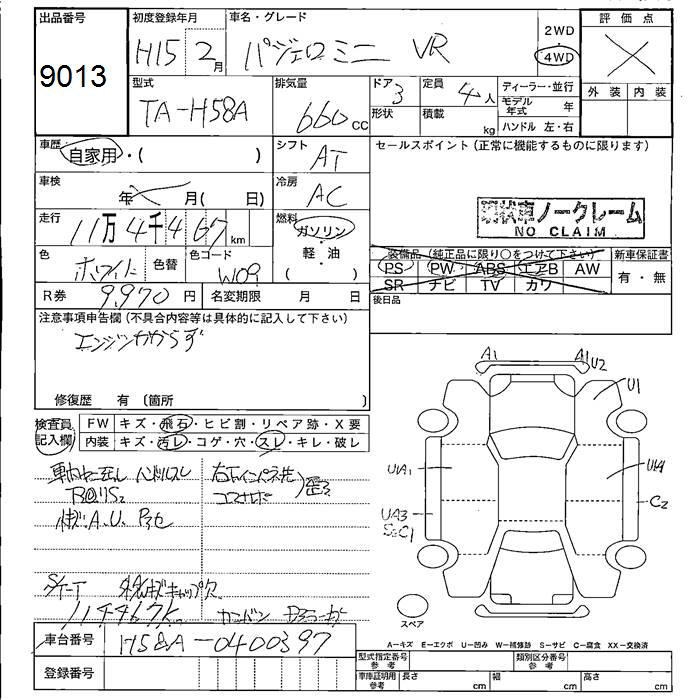 出品番号
9013
初度登録年月
H15 2月
車名・グレード
パジェロミニ VR
2WD
4WD
評価点
外装 内装
型式
TA-H58A
排気量
660cc
ドア 3
形状
定員 4人
積載 kg
ディーラー・並行
モデル年式 年
ハンドル 左・右
車歴
自家用・( )
シフト
AT
セールスポイント(正常に機能するものに限ります)
車検
年 月( 日)
冷房
AC
現状車ノークレーム
NO CLAIM
走行
11万4千467km
燃料
ガソリン・
軽・油
( )
色
ホワイト
色替
色コード
W09
装備品(純正品に限り○をつけて下さい)
PS PW ABS エアB AW
SR ナビ TV カワ
新車保証書
有・無
後日品
R券 9,970円
名変期限 月 日
注意事項申告欄(不具合内容等は具体的に記入して下さい)
エンジンかからず
修復歴 有〔箇所 〕
検査員
記入欄
FW キズ・飛石・ヒビ割・リペア跡・X要
内装 キズ・汚レ・コゲ・穴・スレ・キレ・破レ
A1 A1 U2
U1
UA1
UA3
S2C1
C2
スペア
114467K
A=キズ E=エクボ U=凹み W=補修跡 S=サビ C=腐食 XX=交換済
車台番号
H58A-0400397
登録番号
型式指定番号
参考
類別区分番号
参考
車庫証明用
参考
長さ cm
幅 cm
高さ cm